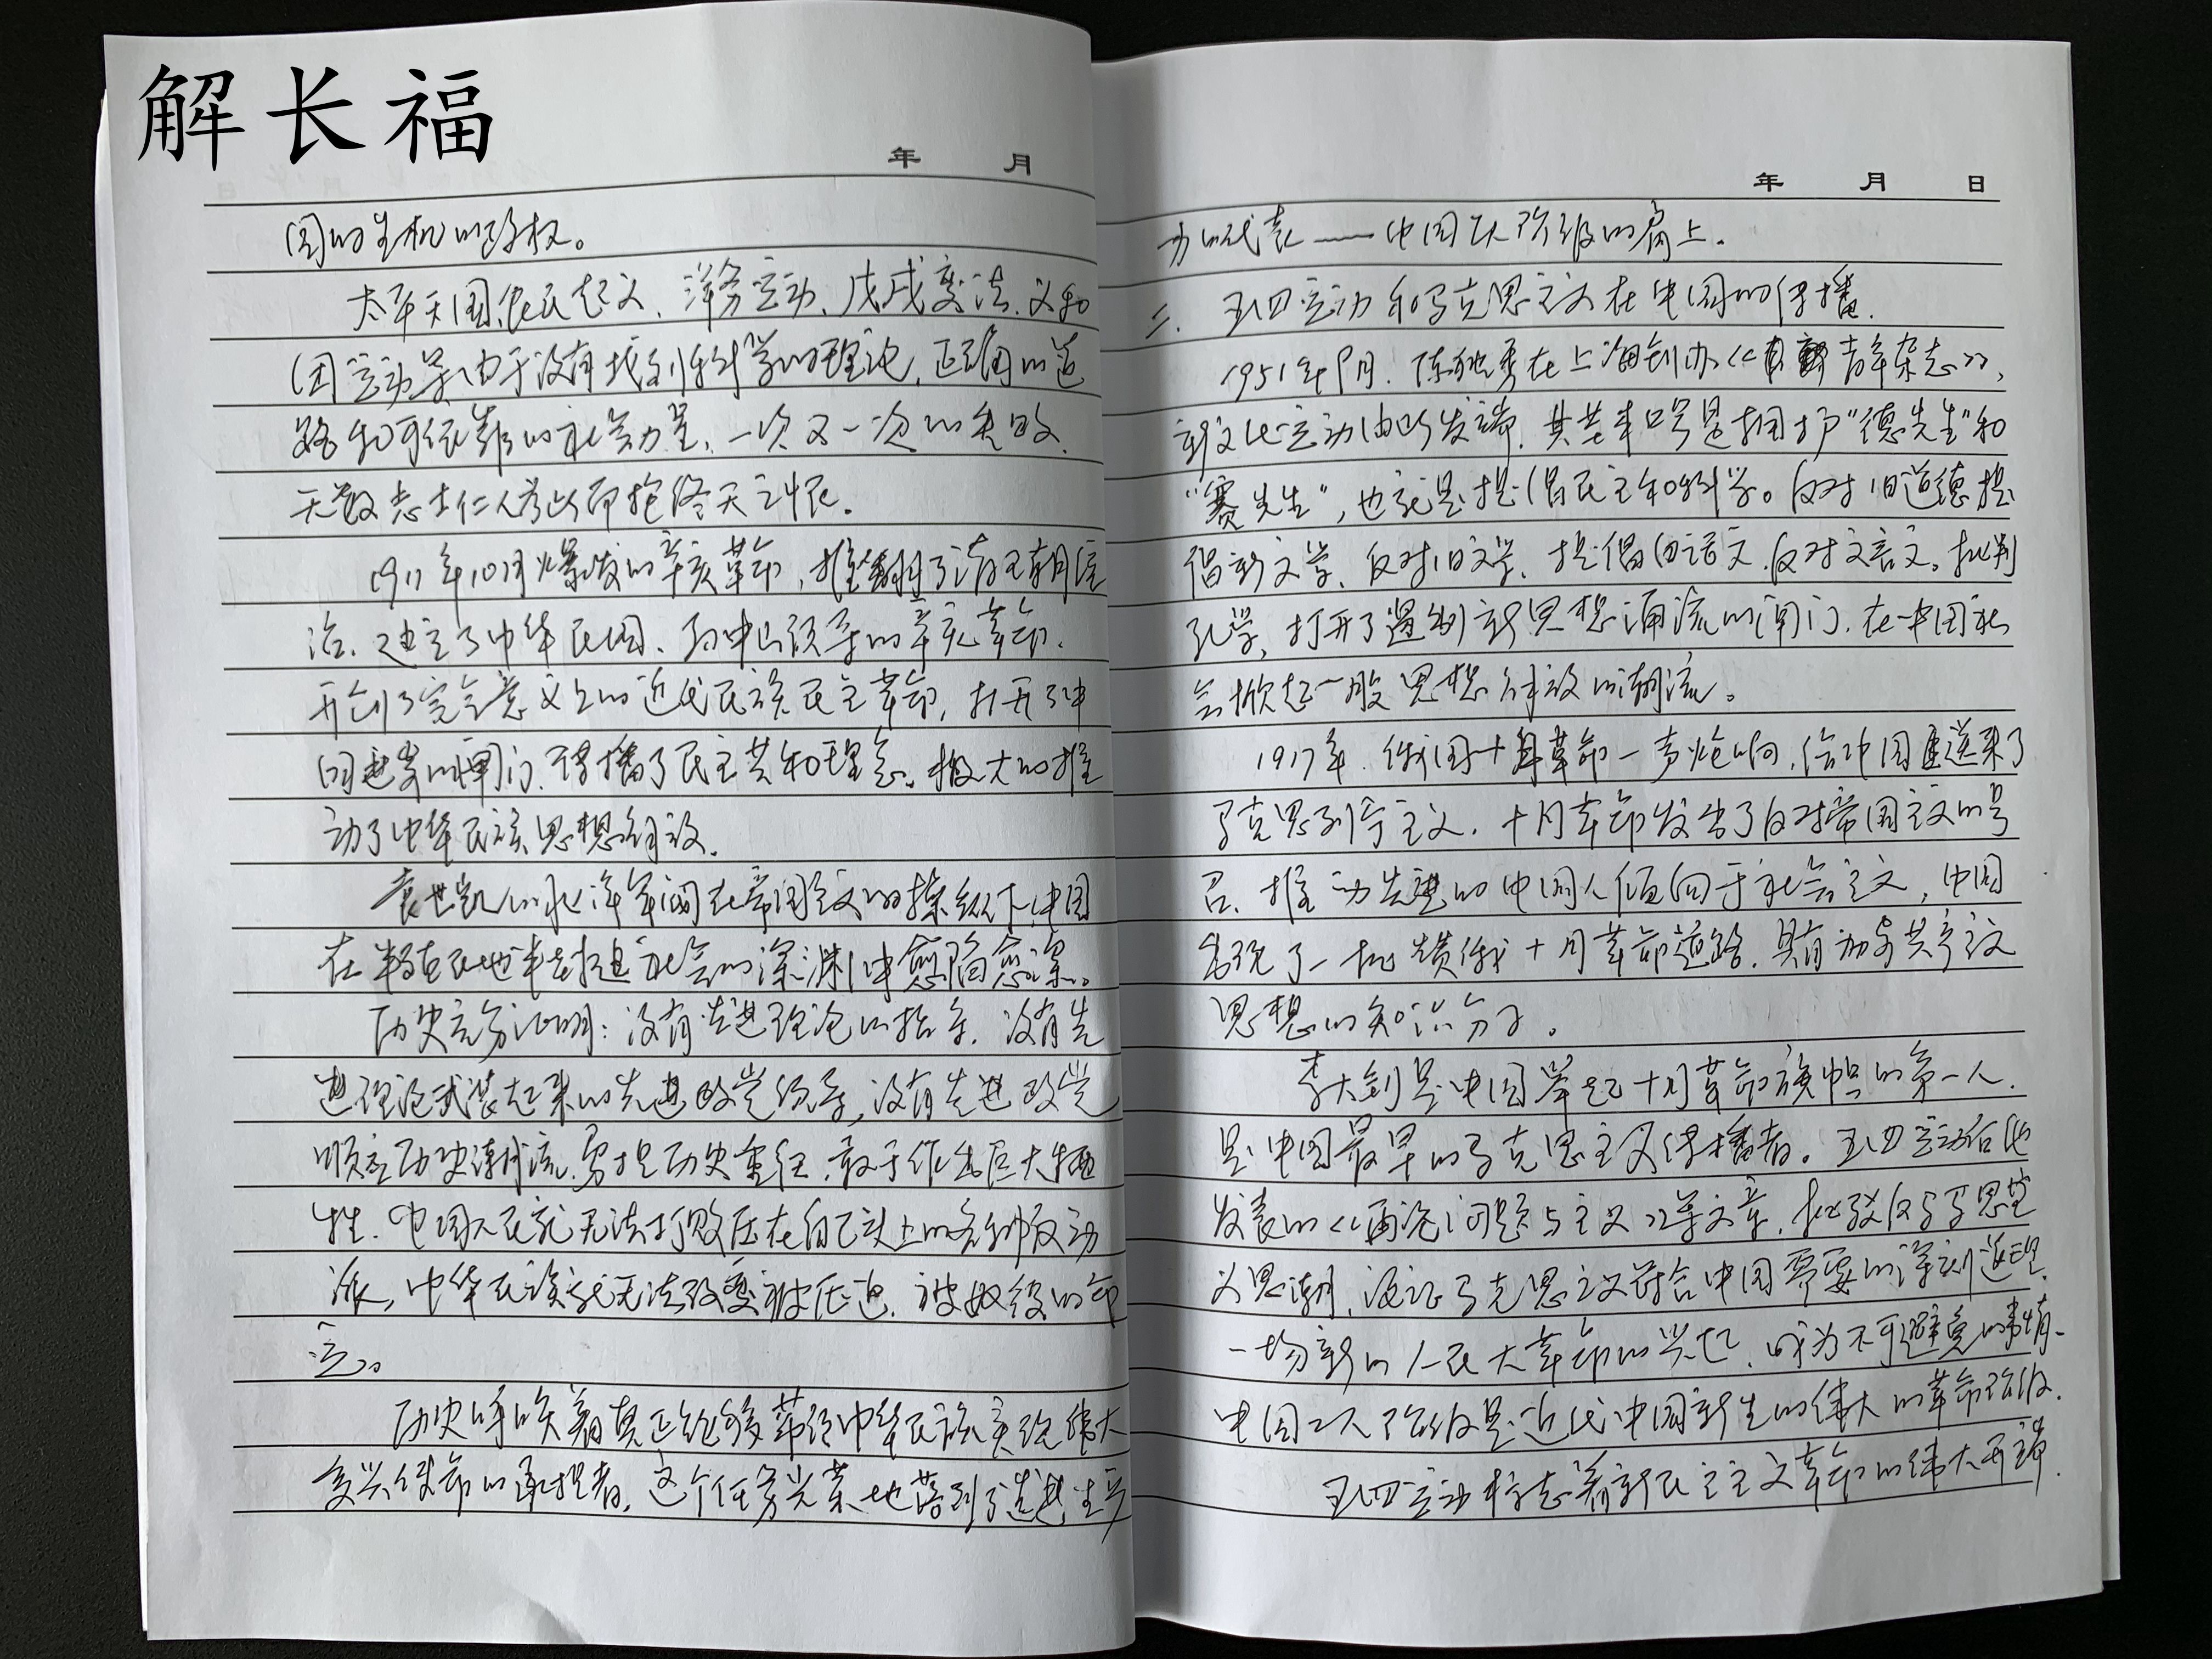 解长福
年 月
国的生机的政权。
太平天国农民起义、洋务运动、戊戌变法、义和
团运动等由于没有找到科学的理论，正确的道
路和可依靠的社会力量，一次又一次的失败，
无数志士仁人为此而抱终天之恨。
1911年10月爆发的辛亥革命，推翻了清王朝统
治，建立了中华民国，孙中山领导的辛亥革命，
开创了完全意义上的近代民族民主革命，打开了中
国进步的闸门，传播了民主共和理念。极大的推
动了中华民族思想解放。
袁世凯的北洋军阀在帝国主义的操纵下，中国
在半殖民地半封建社会的深渊中愈陷愈深。
历史充分证明：没有先进理论的指导，没有先
进理论武装起来的先进政党领导，没有先进政党
顺应历史潮流，勇担历史重任，敢于作出巨大牺
牲，中国人民就无法打败压在自己头上的各种反动
派，中华民族就无法改变被压迫、被奴役的命
运。
历史呼唤着真正能够带领中华民族实现伟大
复兴使命的承担者，这个任务光荣地落到了先进生产
年 月 日
力的代表——中国工人阶级的肩上。
二、五四运动和马克思主义在中国的传播.
1951年9月，陈独秀在上海创办《青年杂志》，
新文化运动由此发端，其基本口号是拥护“德先生”和
“赛先生”，也就是提倡民主和科学。反对旧道德提
倡新文学、反对旧文学、提倡白话文，反对文言文。批判
孔学，打开了遏制新思想涌流的闸门，在中国社
会掀起一股思想解放的潮流。
1917年，俄国十月革命一声炮响，给中国送来了
马克思列宁主义，十月革命发出了反对帝国主义的号
召，推动先进的中国人倾向于社会主义，中国
出现了一批赞俄十月革命道路，具有初步共产主义
思想的知识分子。
李大钊是中国举起十月革命旗帜的第一人，
是中国最早的马克思主义传播者。五四运动后他
发表的《再论问题与主义》等文章，批驳反马克思主
义思潮，论证马克思主义符合中国需要的深刻道理，
一场新的人民大革命的兴起，成为不可避免的事情。
中国工人阶级是近代中国新生的伟大的革命阶级.
五四运动标志着新民主主义革命的伟大开端.